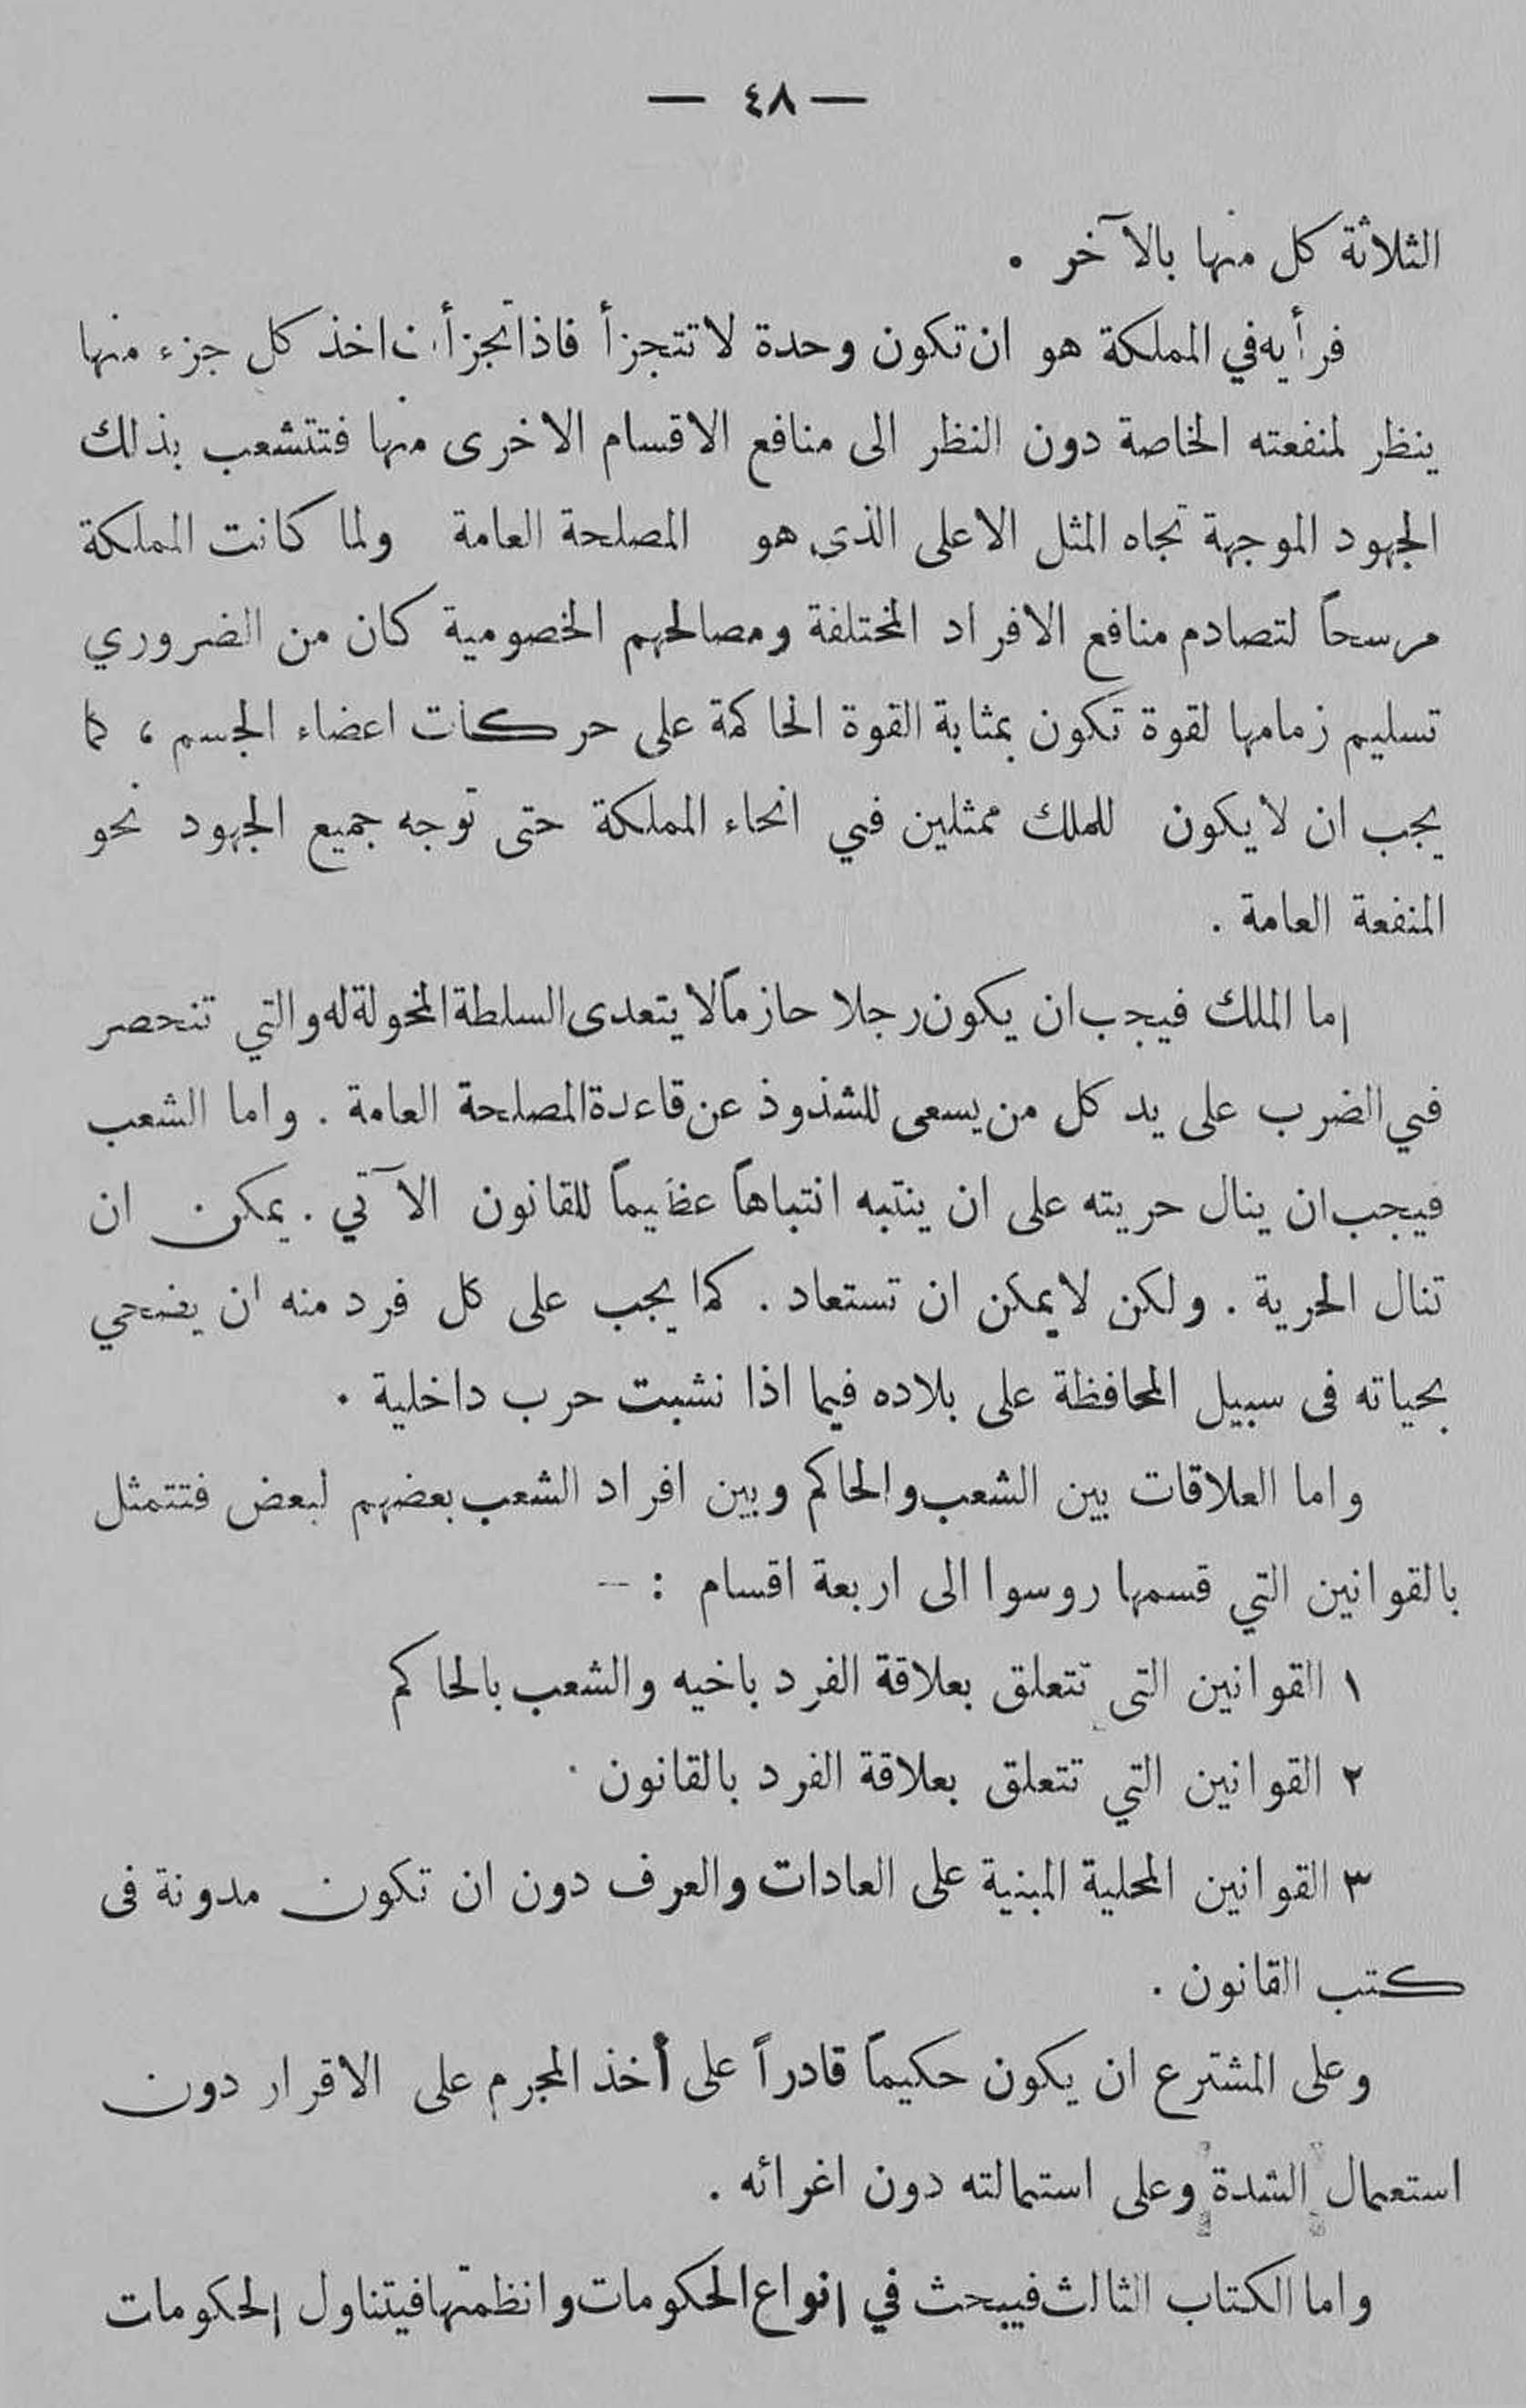 — ٤٨ —
الثلاثة كل منها بالآخر .
فرأيه في المملكة هو ان تكون وحدة لا تتجزأ فاذا تجزأت اخذ كل جزء منها
ينظر لمنفعته الخاصة دون النظر الى منافع الاقسام الاخرى منها فتتشعب بذلك
الجهود الموجهة تجاه المثل الاعلى الذى هو المصلحة العامة ولما كانت المملكة
مرسحاً لتصادم منافع الافراد المختلفة ومصالحهم الخصومية كان من الضروري
تسليم زمامها لقوة تكون بمثابة القوة الحاكمة على حركات اعضاء الجسم ، كما
يجب ان لا يكون للملك ممثلين في انحاء المملكة حتى توجه جميع الجهود نحو
المنفعة العامة .
اما الملك فيجب ان يكون رجلا حازماً لا يتعدى السلطة المخولة له والتي تنحصر
في الضرب على يد كل من يسعى للشذوذ عن قاعدة المصلحة العامة . واما الشعب
فيجب ان ينال حريته على ان ينتبه انتباهاً عظيماً للقانون الآتي . يمكن ان
تنال الحرية . ولكن لا يمكن ان تستعاد . كما يجب على كل فرد منه ان يضحي
بحياته فى سبيل المحافظة على بلاده فيما اذا نشبت حرب داخلية .
واما العلاقات بين الشعب والحاكم وبين افراد الشعب بعضهم لبعض فتتمثل
بالقوانين التي قسمها روسوا الى اربعة اقسام : —
١ القوانين التى تتعلق بعلاقة الفرد باخيه والشعب بالحاكم
٢ القوانين التي تتعلق بعلاقة الفرد بالقانون .
٣ القوانين المحلية المبنية على العادات والعرف دون ان تكون مدونة فى
كتب القانون .
وعلى المشترع ان يكون حكيماً قادراً على أخذ المجرم على الاقرار دون
استعمال الشدة وعلى استمالته دون اغرائه .
واما الكتاب الثالث فيبحث في انواع الحكومات وانظمتها فيتناول الحكومات